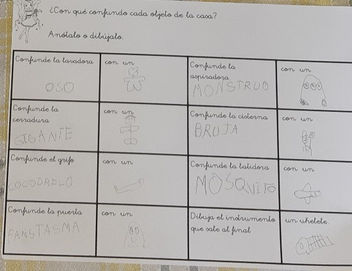 ¿Con qué confunde cada objeto de la casa?
Anótalo o dibújalo.
Confunde la lavadora
OSO
con un
Confunde la
aspiradora
MONSTRUO
con un
Confunde la
cerradura
JGANTE
con un
Confunde la cisterna
BRUJA
con un
Confunde el grifo
COCODRILO
con un
Confunde la batidora
MOSQUITO
con un
Confunde la puerta
FANSTASMA
con un
Dibuja el instrumento
que sale al final
un ukelele.